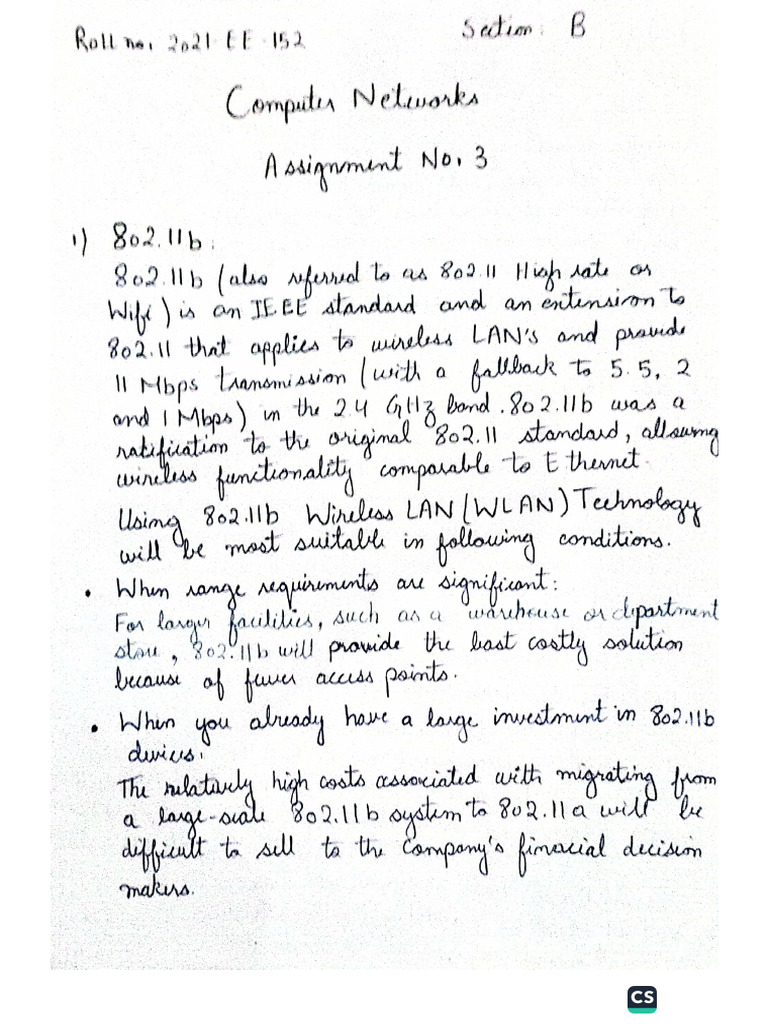 Roll no. 2021-EE-152
Section: B
Computer Networks
Assignment No. 3
1) 802.11b:
802.11b (also referred to as 802.11 High rate or
Wifi) is an IEEE standard and an extension to
802.11 that applies to wireless LAN's and provide
11 Mbps transmission (with a fallback to 5.5, 2
and 1 Mbps) in the 2.4 GHz band. 802.11b was a
ratification to the original 802.11 standard, allowing
wireless functionality comparable to Ethernet.
Using 802.11b Wireless LAN (WLAN) Technology
will be most suitable in following conditions.
• When range requirements are significant:
For larger facilities, such as a warehouse or department
store, 802.11b will provide the least costly solution
because of fewer access points.
• When you already have a large investment in 802.11b
devices.
The relatively high costs associated with migrating from
a large-scale 802.11b system to 802.11a will be
difficult to sell to the Company's financial decision
makers.
CS